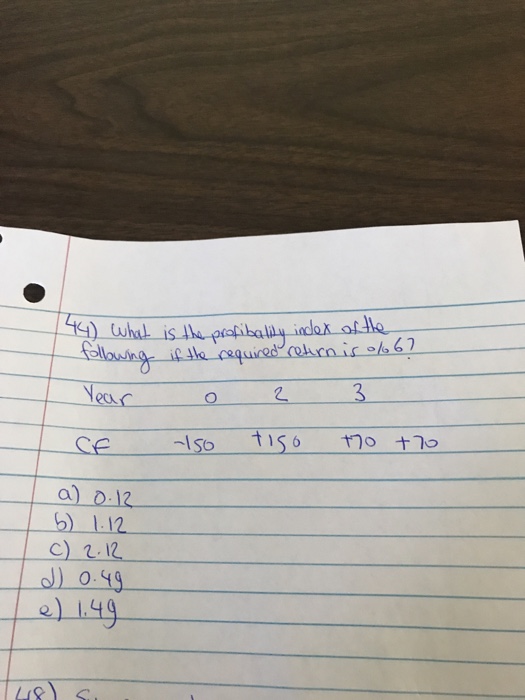 44) What is the profibality index of the
following if the required return is %6?
Year 0 2 3
CF -150 +150 +70 +70
a) 0.12
b) 1.12
c) 2.12
d) 0.49
e) 1.49
48)